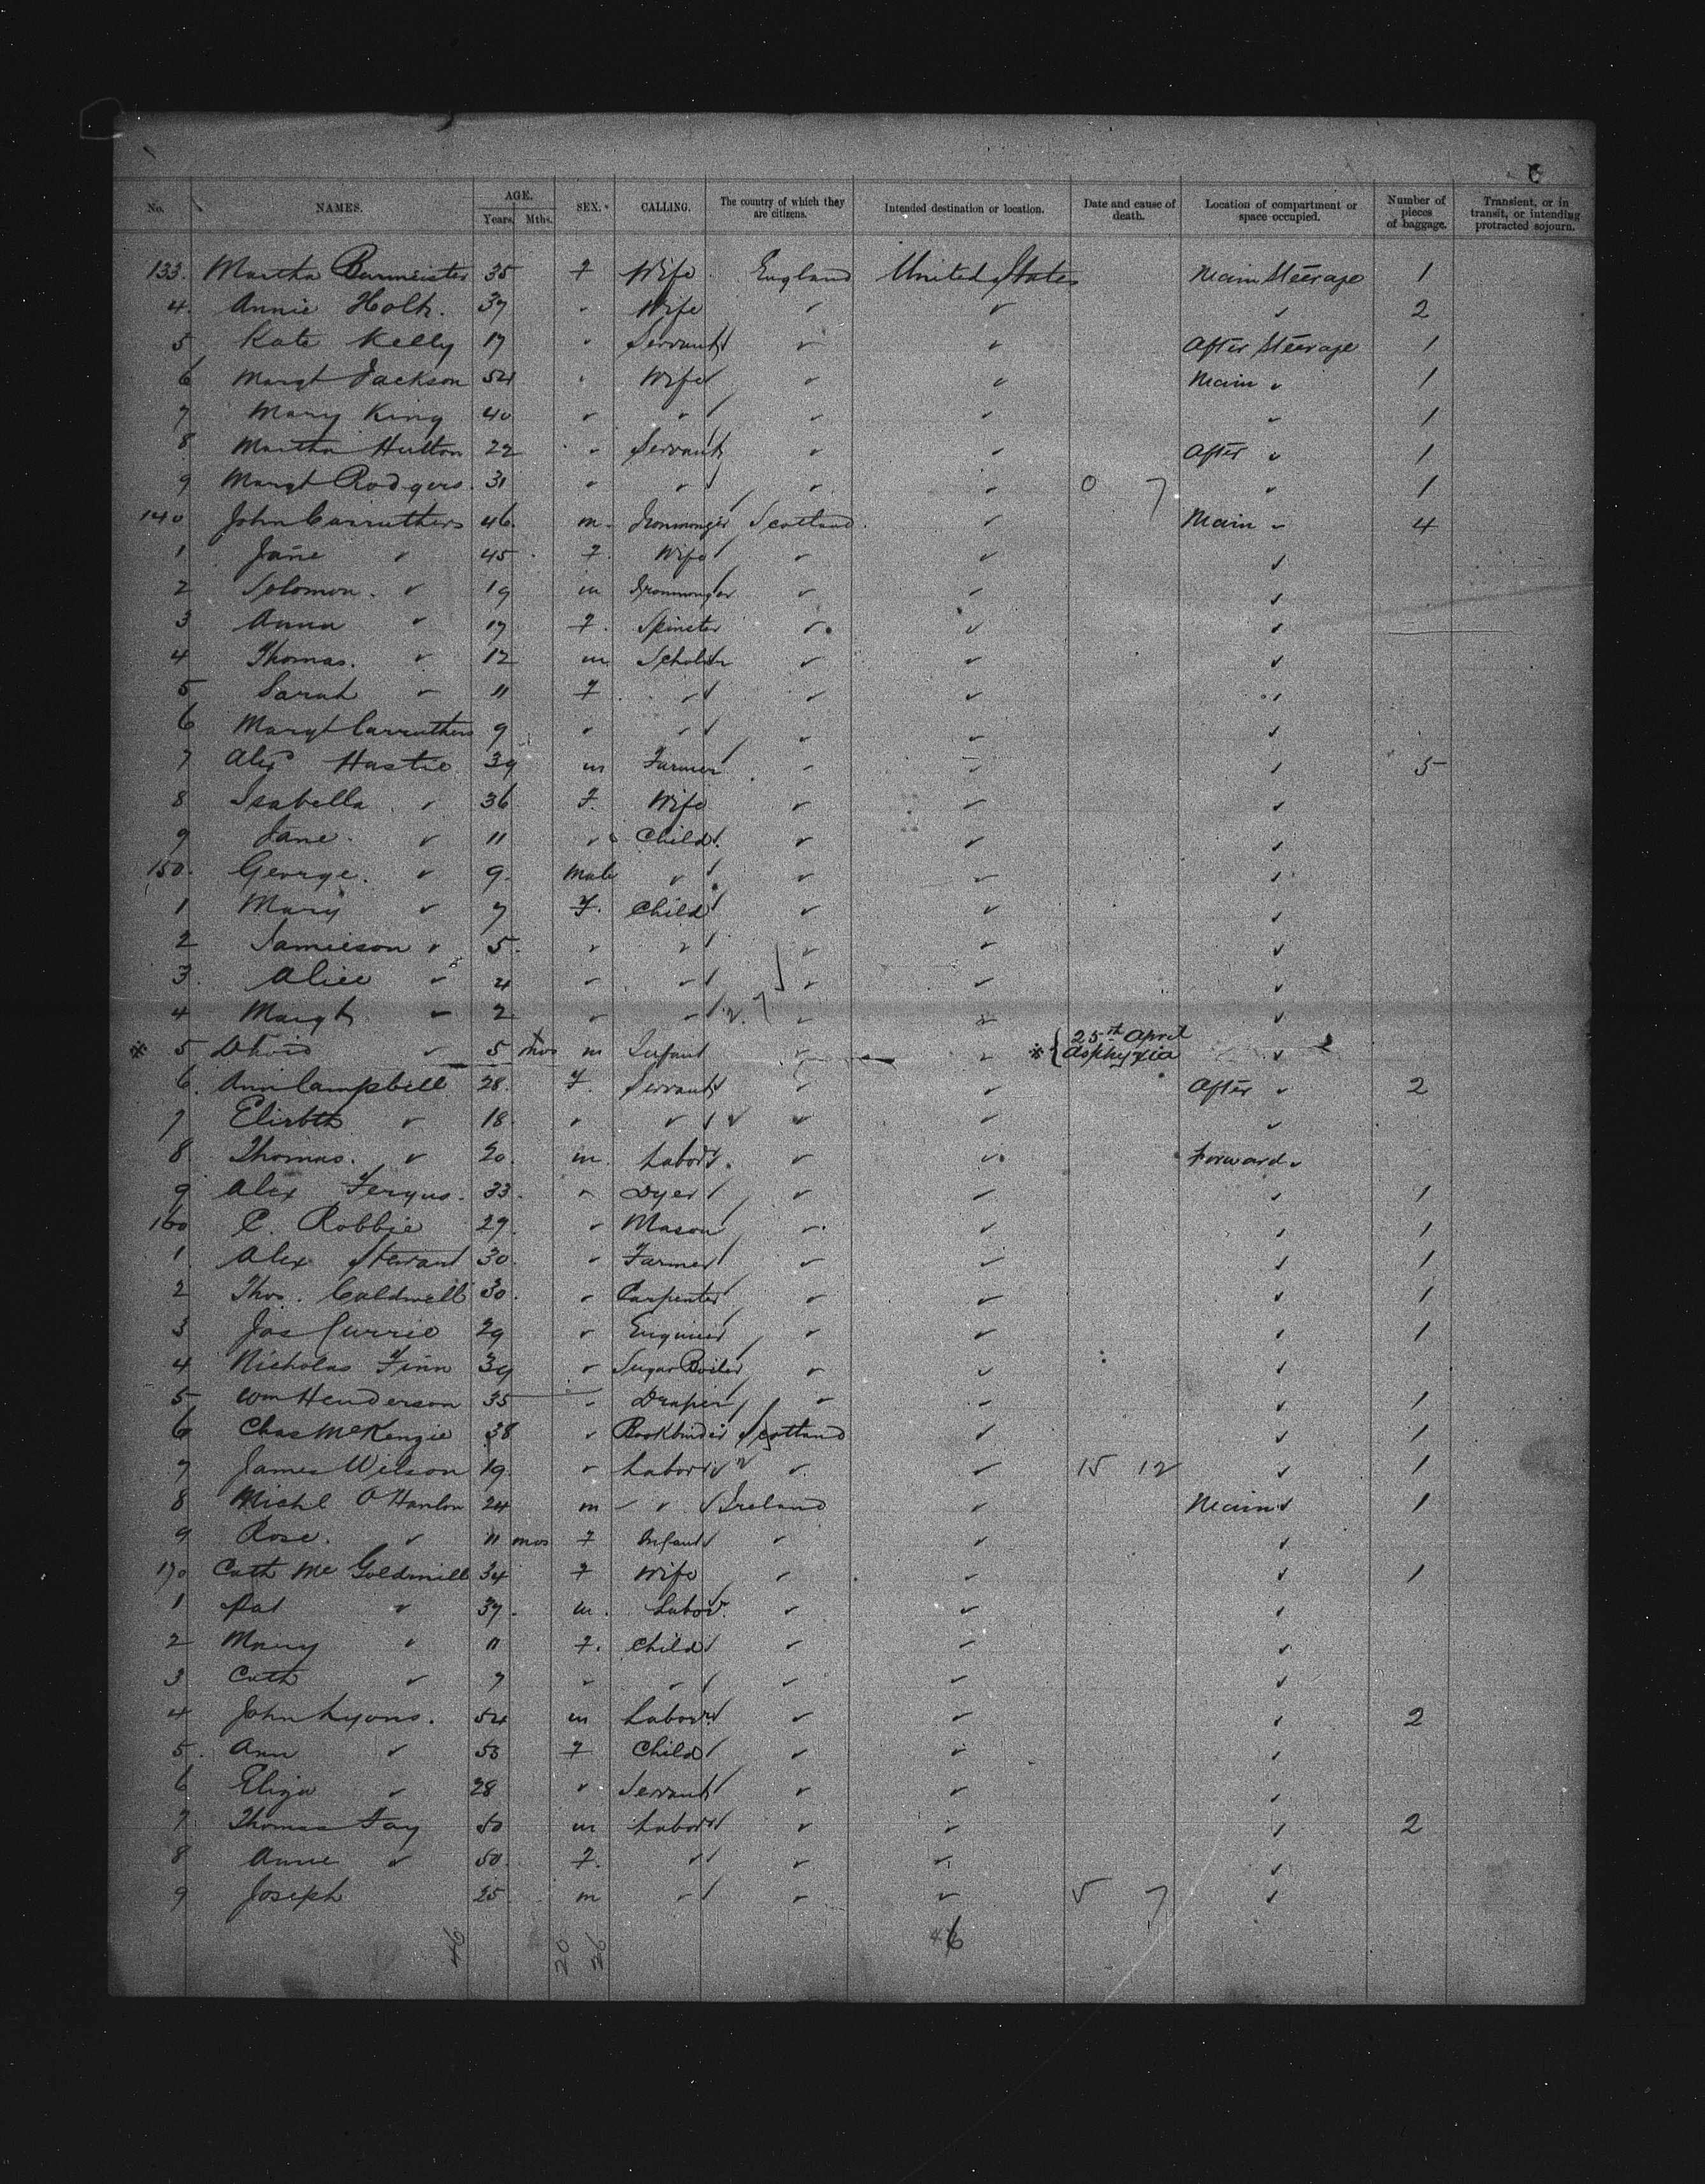 No. NAMES. AGE. Years. Mths. SEX. CALLING. The country of which they are citizens. Intended destination or location. Date and cause of death. Location of compartment or space occupied. Number of pieces of baggage. Transient, or in transit, or intending protracted sojourn.
133. Martha Burmeister 35 F Wife England United States Main Steerage 1
4. Annie Holt. 37 " Wife " " " 2
5 Kate Kelly 17 " Servant " " After Steerage 1
6 Margt Jackson 54 " Wife " " Main " 1
7 Mary King 40 " " " " " 1
8 Martha Hutton 22 " Servant " " After " 1
9 Margt Rodgers. 31 " " " " 0 7 " 1
140 John Carruthers 46. m. Ironmonger Scotland. " Main " 4
1 Jane " 45 F. Wife " " "
2 Solomon. " 19 m Ironmonger " " "
3 Anna " 17 F. Spinster " " "
4 Thomas. " 12 m Scholar " " "
5 Sarah " 11 F " " " "
6 Margt Carruthers 9 " " " " "
7 Alex Hastie 39 m Farmer " " " 5
8 Isabella " 36 F. Wife " " "
9 Jane. " 11 " Child " " "
150. George. " 9. Male " " " "
1 Mary " 7 F. Child " " "
2 Jamieson " 5. " " " " "
3. Alice " 4 " " " " "
4 Margt " 2 " " " " "
* 5 David " 5 mos m Infant " " * { 25th April Asphyxia "
6. Ann Campbell 28. F. Servant " " After " 2
7 Elizbth " 18. " " " " "
8 Thomas. " 20. m. Labor. " " Forward "
9 Alex Fergus. 33. " Dyer " " " 1
160 C. Robbie 29. " Mason " " " 1
1. Alex Stewart 30. " Farmer " " " 1
2 Thos. Caldwell 30. " Carpenter " " " 1
3 Jas Currie 29 " Engineer " " " 1
4 Nicholas Finn 39 " Sugar Boiler " " "
5 Wm Henderson 35 " Draper " " " 1
6 Chas McKenzie 38 " Bookbinder Scotland " " 1
7 James Wilson 19. " Labor " " 15 12 " 1
8 Michl O'Hanlon 24 m " Ireland " Main " 1
9 Rose. " 11 mos F Infant " " "
170 Cath Mc Goldrick 34 F Wife " " " 1
1 Pat " 37. m. Labor. " " "
2 Mary " 11 F. Child " " "
3 Cath " 7 " " " " "
4 John Lyons. 54 m Labor " " " 2
5. Ann " 53 F Child " " "
6 Eliza " 28 " Servant " " "
7. Thomas Fay 50 m Labor " " " 2
8 Anne " 50. F. " " " "
9 Joseph 25 m " " " 5 7 "
46 20 26 46